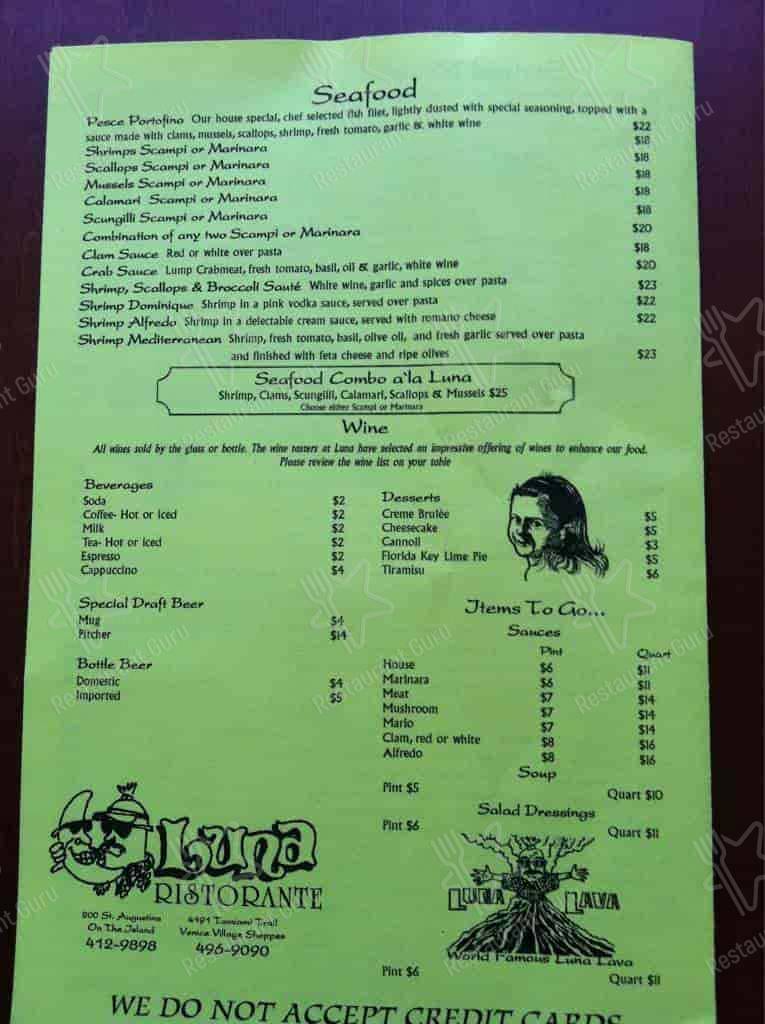 Seafood
Pesce Portofino Our house special, chef selected fish filet, lightly dusted with special seasoning, topped with a
sauce made with clams, mussels, scallops, shrimp, fresh tomato, garlic & white wine $22
Shrimps Scampi or Marinara $18
Scallops Scampi or Marinara $18
Mussels Scampi or Marinara $18
Calamari Scampi or Marinara $18
Scungilli Scampi or Marinara $18
Combination of any two Scampi or Marinara $20
Clam Sauce Red or white over pasta $18
Crab Sauce Lump Crabmeat, fresh tomato, basil, oil & garlic, white wine $20
Shrimp, Scallops & Broccoli Sauté White wine, garlic and spices over pasta $23
Shrimp Dominique Shrimp in a pink vodka sauce, served over pasta $22
Shrimp Alfredo Shrimp in a delectable cream sauce, served with romano cheese $22
Shrimp Mediterranean Shrimp, fresh tomato, basil, olive oil, and fresh garlic served over pasta
and finished with feta cheese and ripe olives $23
Seafood Combo a'la Luna
Shrimp, Clams, Scungilli, Calamari, Scallops & Mussels $25
Choose either Scampi or Marinara
Wine
All wines sold by the glass or bottle. The wine tasters at Luna have selected an impressive offering of wines to enhance our food.
Please review the wine list on your table
Beverages
Soda $2
Coffee- Hot or Iced $2
Milk $2
Tea- Hot or Iced $2
Espresso $2
Cappuccino $4
Desserts
Creme Brulée $5
Cheesecake $5
Cannoli $3
Florida Key Lime Pie $5
Tiramisu $6
Special Draft Beer
Mug $4
Pitcher $14
Bottle Beer
Domestic $4
Imported $5
Items To Go...
Sauces
Pint Quart
House $6 $11
Marinara $6 $11
Meat $7 $14
Mushroom $7 $14
Mario $7 $14
Clam, red or white $8 $16
Alfredo $8 $16
Soup
Pint $5 Quart $10
Salad Dressings
Pint $6 Quart $11
Luna
RISTORANTE
200 St. Augustine
On The Island
412-9898
4191 Tamiami Trail
Venice Village Shoppes
496-9090
LUNA LAVA
World Famous Luna Lava
Pint $6 Quart $11
WE DO NOT ACCEPT CREDIT CARDS
Restaurant Guru